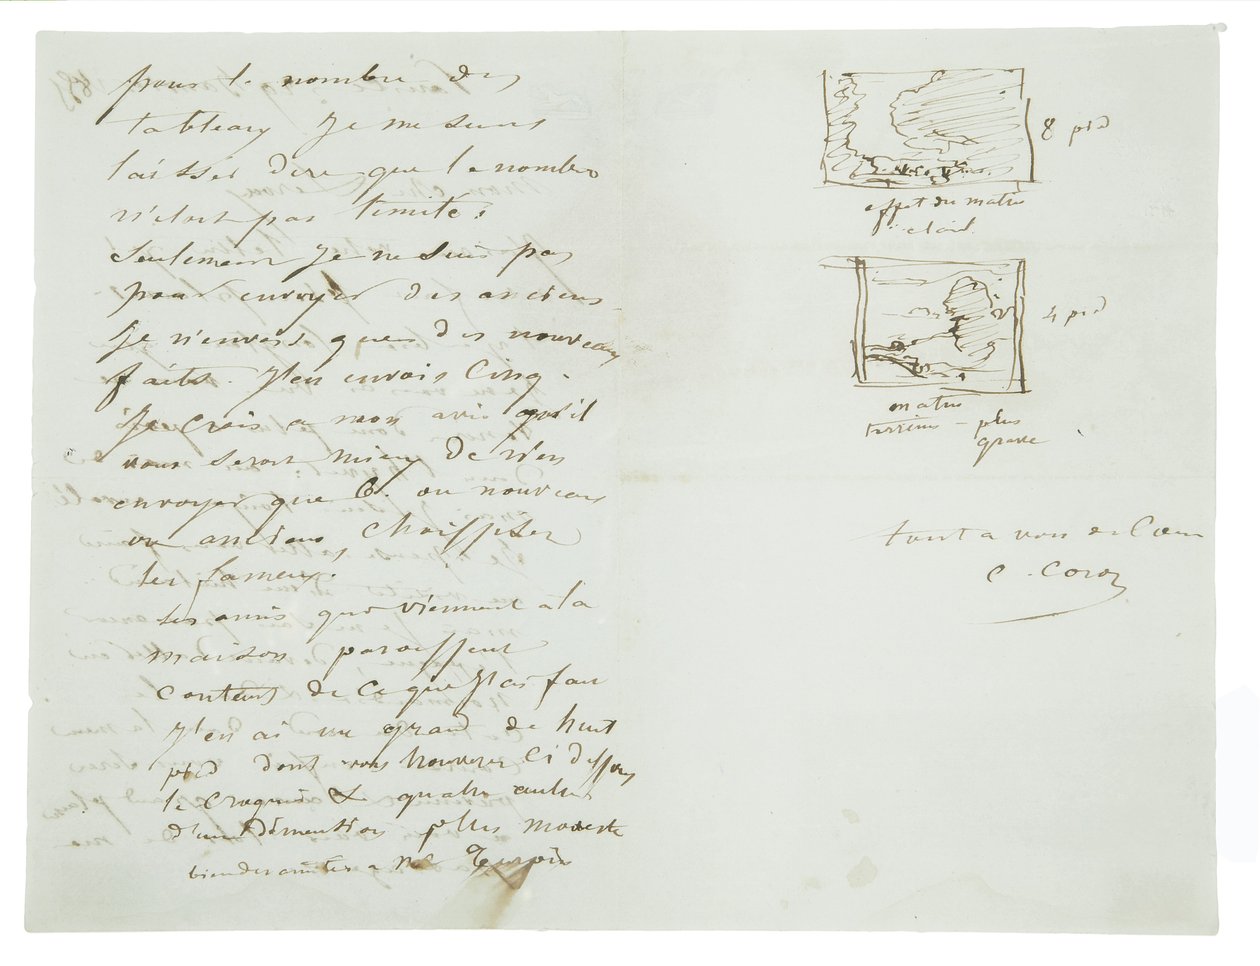 pour le nombre des
tableaux Je me suis
laisser dire que le nombre
n'etoit pas limité.
Seulement Je ne suis pas
pour envoyer des anciens
Je n'envois que des nouveaux
faits. J'en envois Cinq.
Je crois a mon avis qu'il
vous seroit mieux de rien
envoyer que 6. ou nouveaux
ou anciens Choissisez
les fameux.
Les amis qui viennent a la
maison paroissent
contents de ce que J'ai fait
J'en ai un grand de huit
pied dont vous trouverez Ci dessous
le croquis & quatre autres
d'une dimention plus modeste
bien des amitiés a Mr Turpin
8 pied
effet du matin
clair
4 pied
matin
terrains – plus
grave
tout a vous de Coeur
C. Corot